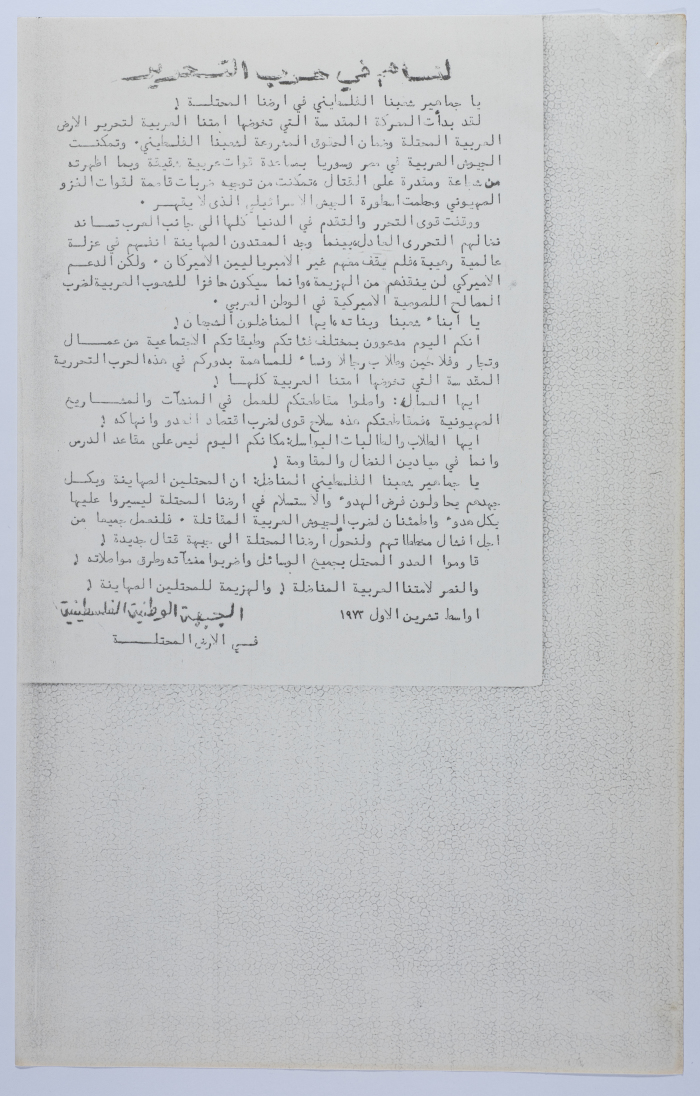 لنساهم في حرب التحرير
يا جماهير شعبنا الفلسطيني في ارضنا المحتلة !
لقد بدأت المعركة المقدسة التي تخوضها امتنا العربية لتحرير الارض
العربية المحتلة وضمان الحقوق المشروعة لشعبنا الفلسطيني . وتمكنت
الجيوش العربية في مصر وسوريا بمساعدة قوات عربية شقيقة وبما اظهرته
من شجاعة ومقدرة على القتال ، تمكنت من توجيه ضربات قاصمة لقوات الغزو
الصهيوني وحطمت اسطورة الجيش الاسرائيلي الذى لا يقهر .
ووقفت قوى التحرر والتقدم في الدنيا كلها الى جانب العرب تساند
نضالهم التحررى العادل ، بينما وجد المعتدون الصهاينة انفسهم في عزلة
عالمية رهيبة ، فلم يقف معهم غير الامبرياليين الاميركان . ولكن الدعم
الاميركي لن ينقذهم من الهزيمة ، وانما سيكون حافزا للشعوب العربية لضرب
المصالح اللصوصية الاميركية في الوطن العربي .
يا أبناء شعبنا وبناته ، ايها المناضلون الشجعان !
انكم اليوم مدعوون بمختلف فئاتكم وطبقاتكم الاجتماعية من عمال
وتجار وفلاحين وطلاب رجالا ونساء للمساهمة بدوركم في هذه الحرب التحررية
المقدسة التي تخوضها امتنا العربية كلها !
ايها العمال : واصلوا مقاطعتكم للعمل في المنشآت والمشاريع
الصهيونية ، فمقاطعتكم هذه سلاح قوى لضرب اقتصاد العدو وانهاكه !
ايها الطلاب والطالبات البواسل : مكانكم اليوم ليس على مقاعد الدرس
وانما في ميادين النضال والمقاومة !
يا جماهير شعبنا الفلسطيني المناضل : ان المحتلين الصهاينة وبكل
جهدهم يحاولون فرض الهدوء والاستسلام في ارضنا المحتلة ليسيروا عليها
بكل هدوء واطمئنان لضرب الجيوش العربية المقاتلة . فلنعمل جميعا من
اجل افشال مخططاتهم ولنحول ارضنا المحتلة الى جبهة قتال جديدة !
قاوموا العدو المحتل بجميع الوسائل واضربوا منشآته وطرق مواصلاته !
والنصر لامتنا العربية المناضلة ! والهزيمة للمحتلين الصهاينة !
اواسط تشرين الاول ١٩٧٣
الجبهة الوطنية الفلسطينية
في الارض المحتلة